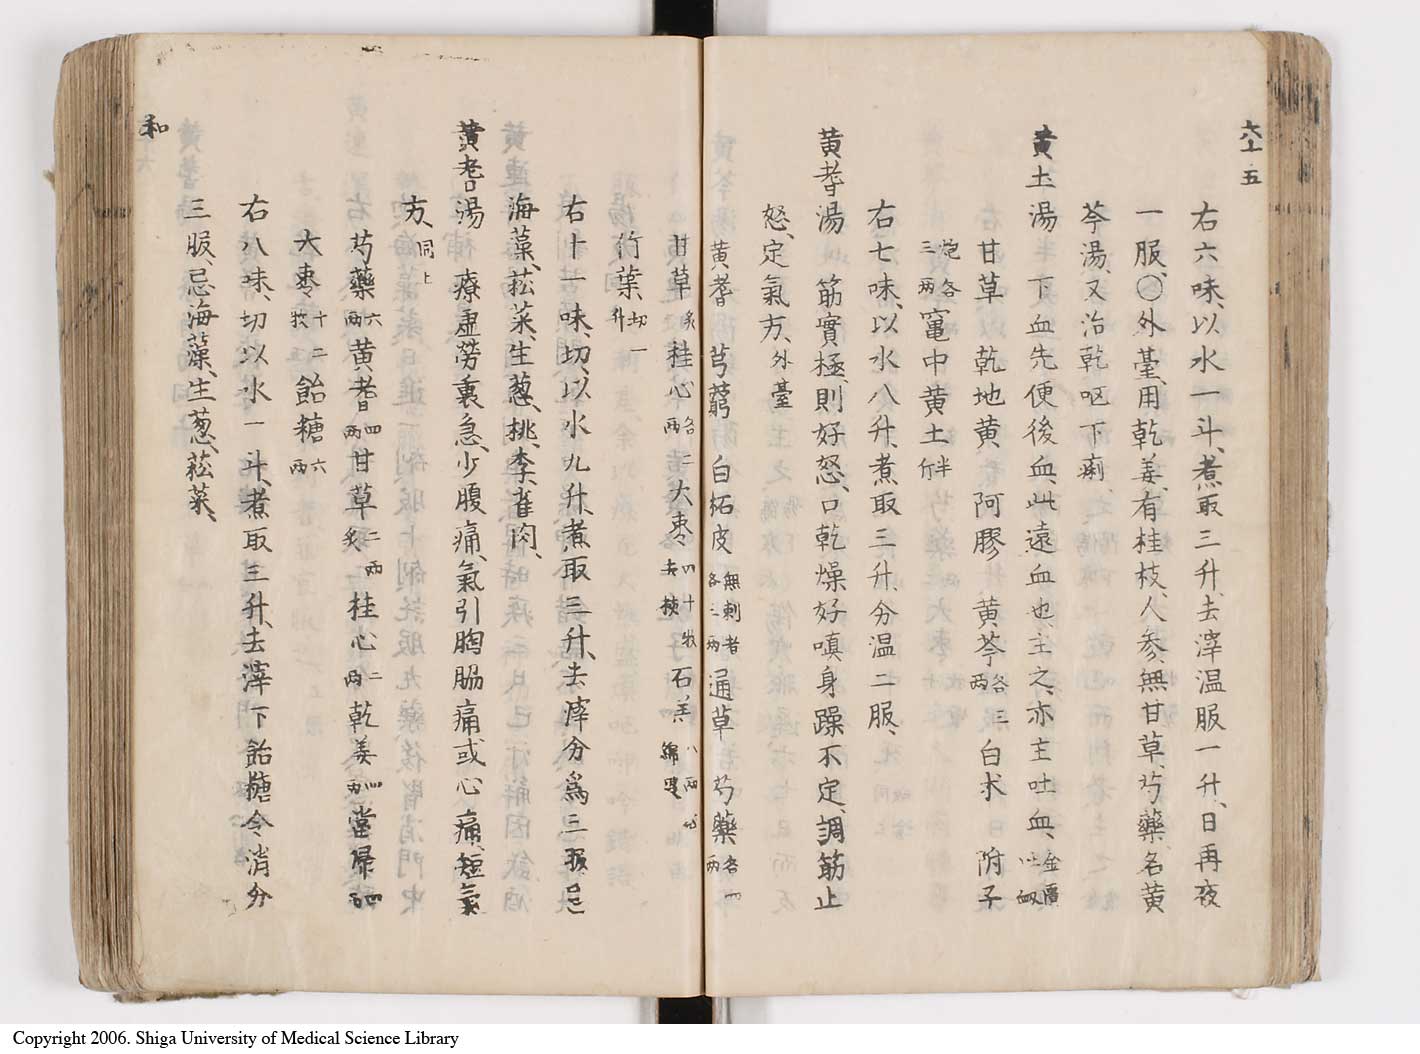 六十五
右六味、以水一斗、煮取三升、去滓温服一升、日再夜
一服、〇外臺、用乾姜、有桂枝、人参、無甘草、芍藥、名黄
芩湯、又治乾呕下痢
黄土湯 下血先便後血、此遠血也、主之、亦主吐血、金匱吐血
甘草 乾地黄 阿膠 黄芩各三兩 白朮 附子
炮各三兩 竃中黄土半斤
右七味、以水八升、煮取三升、分温二服、
黄耆湯 筋實極、則好怒、口乾燥好嗔、身躁不定、調筋止
怒、定氣方、外臺
黄耆 芎藭 白柘皮無刺者各三兩 通草 芍藥各四兩
甘草炙 桂心各二兩 大棗四十枚去核 石羔八兩 綿
竹葉、切一升
右十一味、切、以水九升、煮取三升、去滓分爲三服忌
海藻、菘菜、生葱、桃、李、雀肉、
黄耆湯 療虚勞裏急、少腹痛、氣引胸脇痛或心痛、短氣
方、同上
芍藥六兩 黄耆四兩 甘草二兩炙 桂心二兩 乾姜四兩 當帰四兩
大棗十二枚 飴糖六兩
右八味、切、以水一斗、煮取三升、去滓下飴糖令消分
三服、忌海藻、生葱、菘菜、
和
Copyright 2006. Shiga University of Medical Science Library